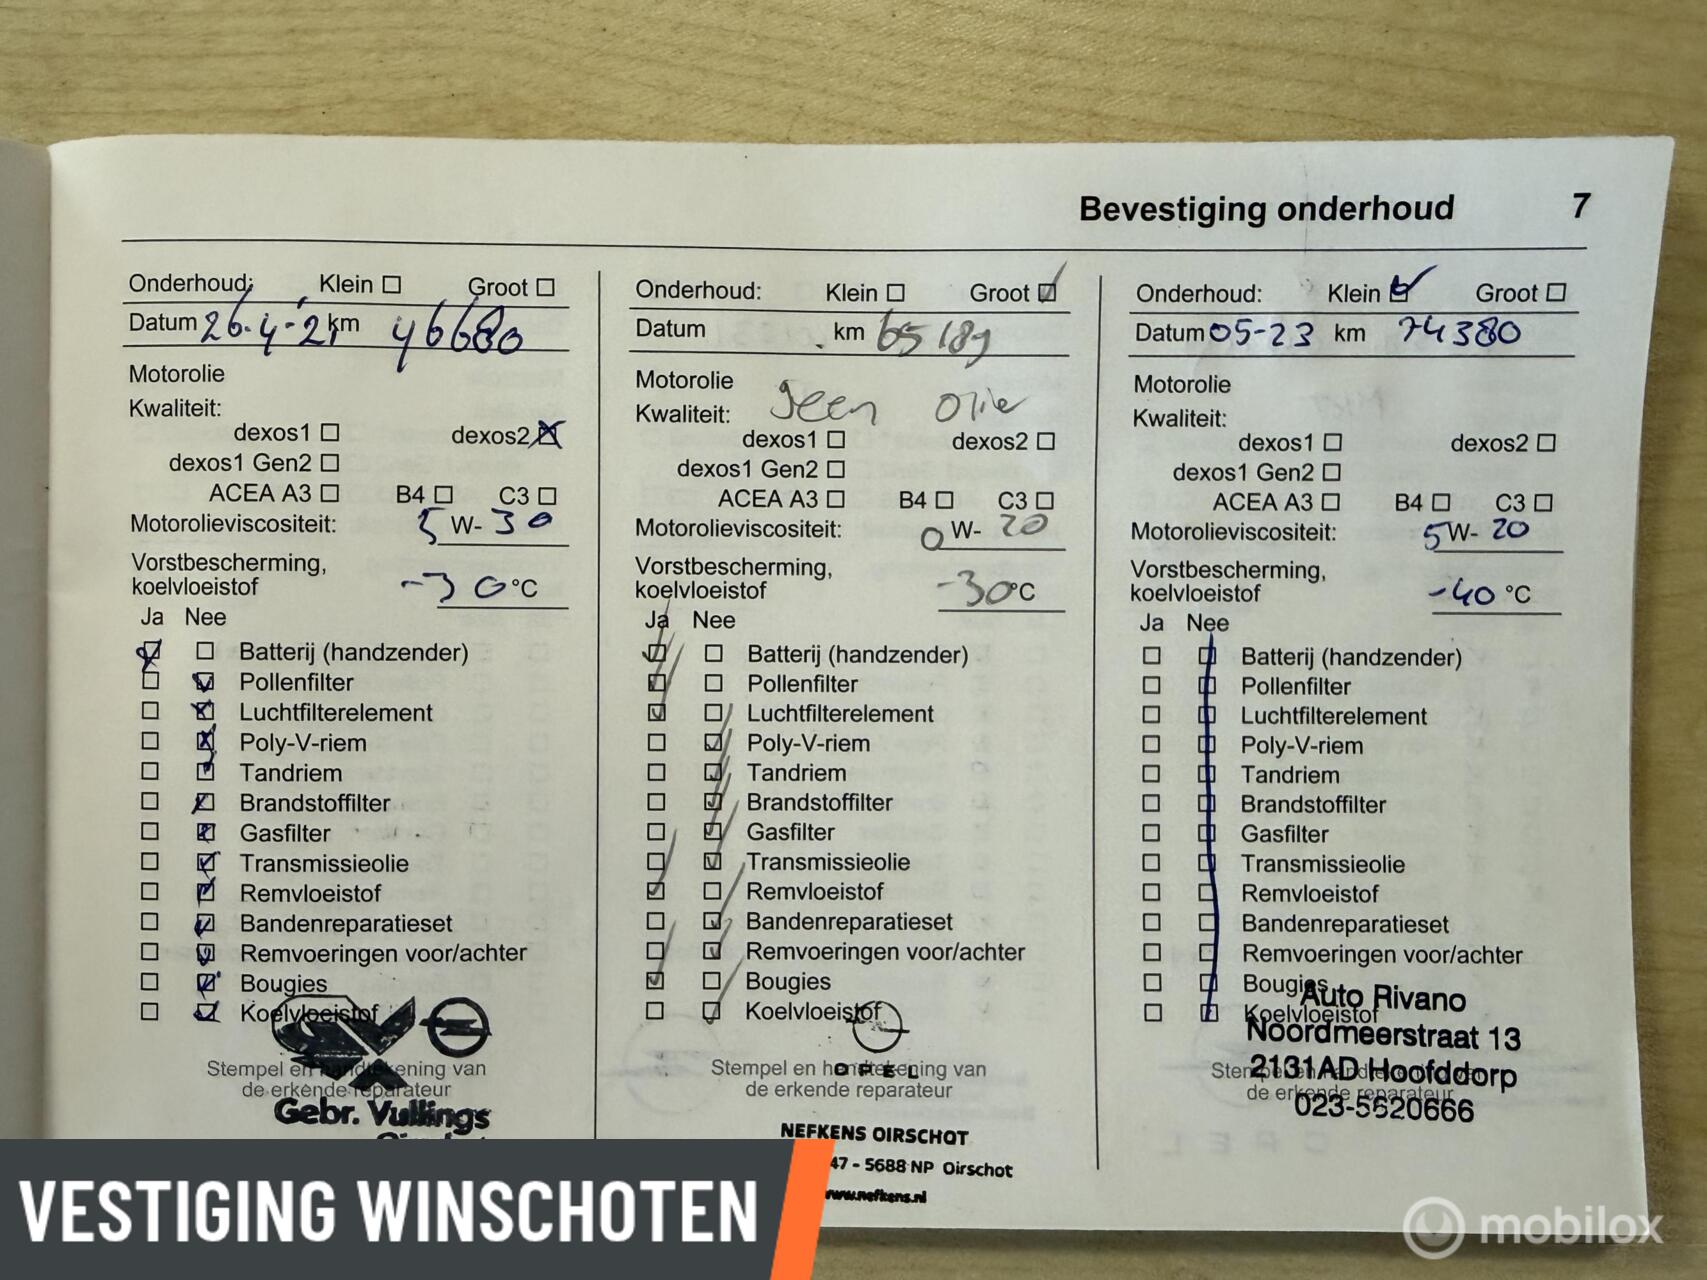 Bevestiging onderhoud 7
Onderhoud: Klein Groot
Datum 26-4-'21 km 46680
Motorolie
Kwaliteit:
dexos1 dexos2
dexos1 Gen2
ACEA A3 B4 C3
Motorolieviscositeit: 5 W- 30
Vorstbescherming,
koelvloeistof -30 °C
Ja Nee
Batterij (handzender)
Pollenfilter
Luchtfilterelement
Poly-V-riem
Tandriem
Brandstoffilter
Gasfilter
Transmissieolie
Remvloeistof
Bandenreparatieset
Remvoeringen voor/achter
Bougies
Koelvloeistof
Stempel en handtekening van
de erkende reparateur
Gebr. Vullings
Onderhoud: Klein Groot
Datum km 65189
Motorolie
Kwaliteit: geen olie
dexos1 dexos2
dexos1 Gen2
ACEA A3 B4 C3
Motorolieviscositeit: 0 W- 20
Vorstbescherming,
koelvloeistof -30 °C
Ja Nee
Batterij (handzender)
Pollenfilter
Luchtfilterelement
Poly-V-riem
Tandriem
Brandstoffilter
Gasfilter
Transmissieolie
Remvloeistof
Bandenreparatieset
Remvoeringen voor/achter
Bougies
Koelvloeistof
Stempel en handtekening van
OPEL
de erkende reparateur
NEFKENS OIRSCHOT
47 - 5688 NP Oirschot
www.nefkens.nl
Onderhoud: Klein Groot
Datum 05-23 km 74380
Motorolie
Kwaliteit:
dexos1 dexos2
dexos1 Gen2
ACEA A3 B4 C3
Motorolieviscositeit: 5 W- 20
Vorstbescherming,
koelvloeistof -40 °C
Ja Nee
Batterij (handzender)
Pollenfilter
Luchtfilterelement
Poly-V-riem
Tandriem
Brandstoffilter
Gasfilter
Transmissieolie
Remvloeistof
Bandenreparatieset
Remvoeringen voor/achter
Bougies
Koelvloeistof
Auto Rivano
Noordmeerstraat 13
2131AD Hoofddorp
023-5620666
Stempel en handtekening van
de erkende reparateur
VESTIGING WINSCHOTEN
mobilox